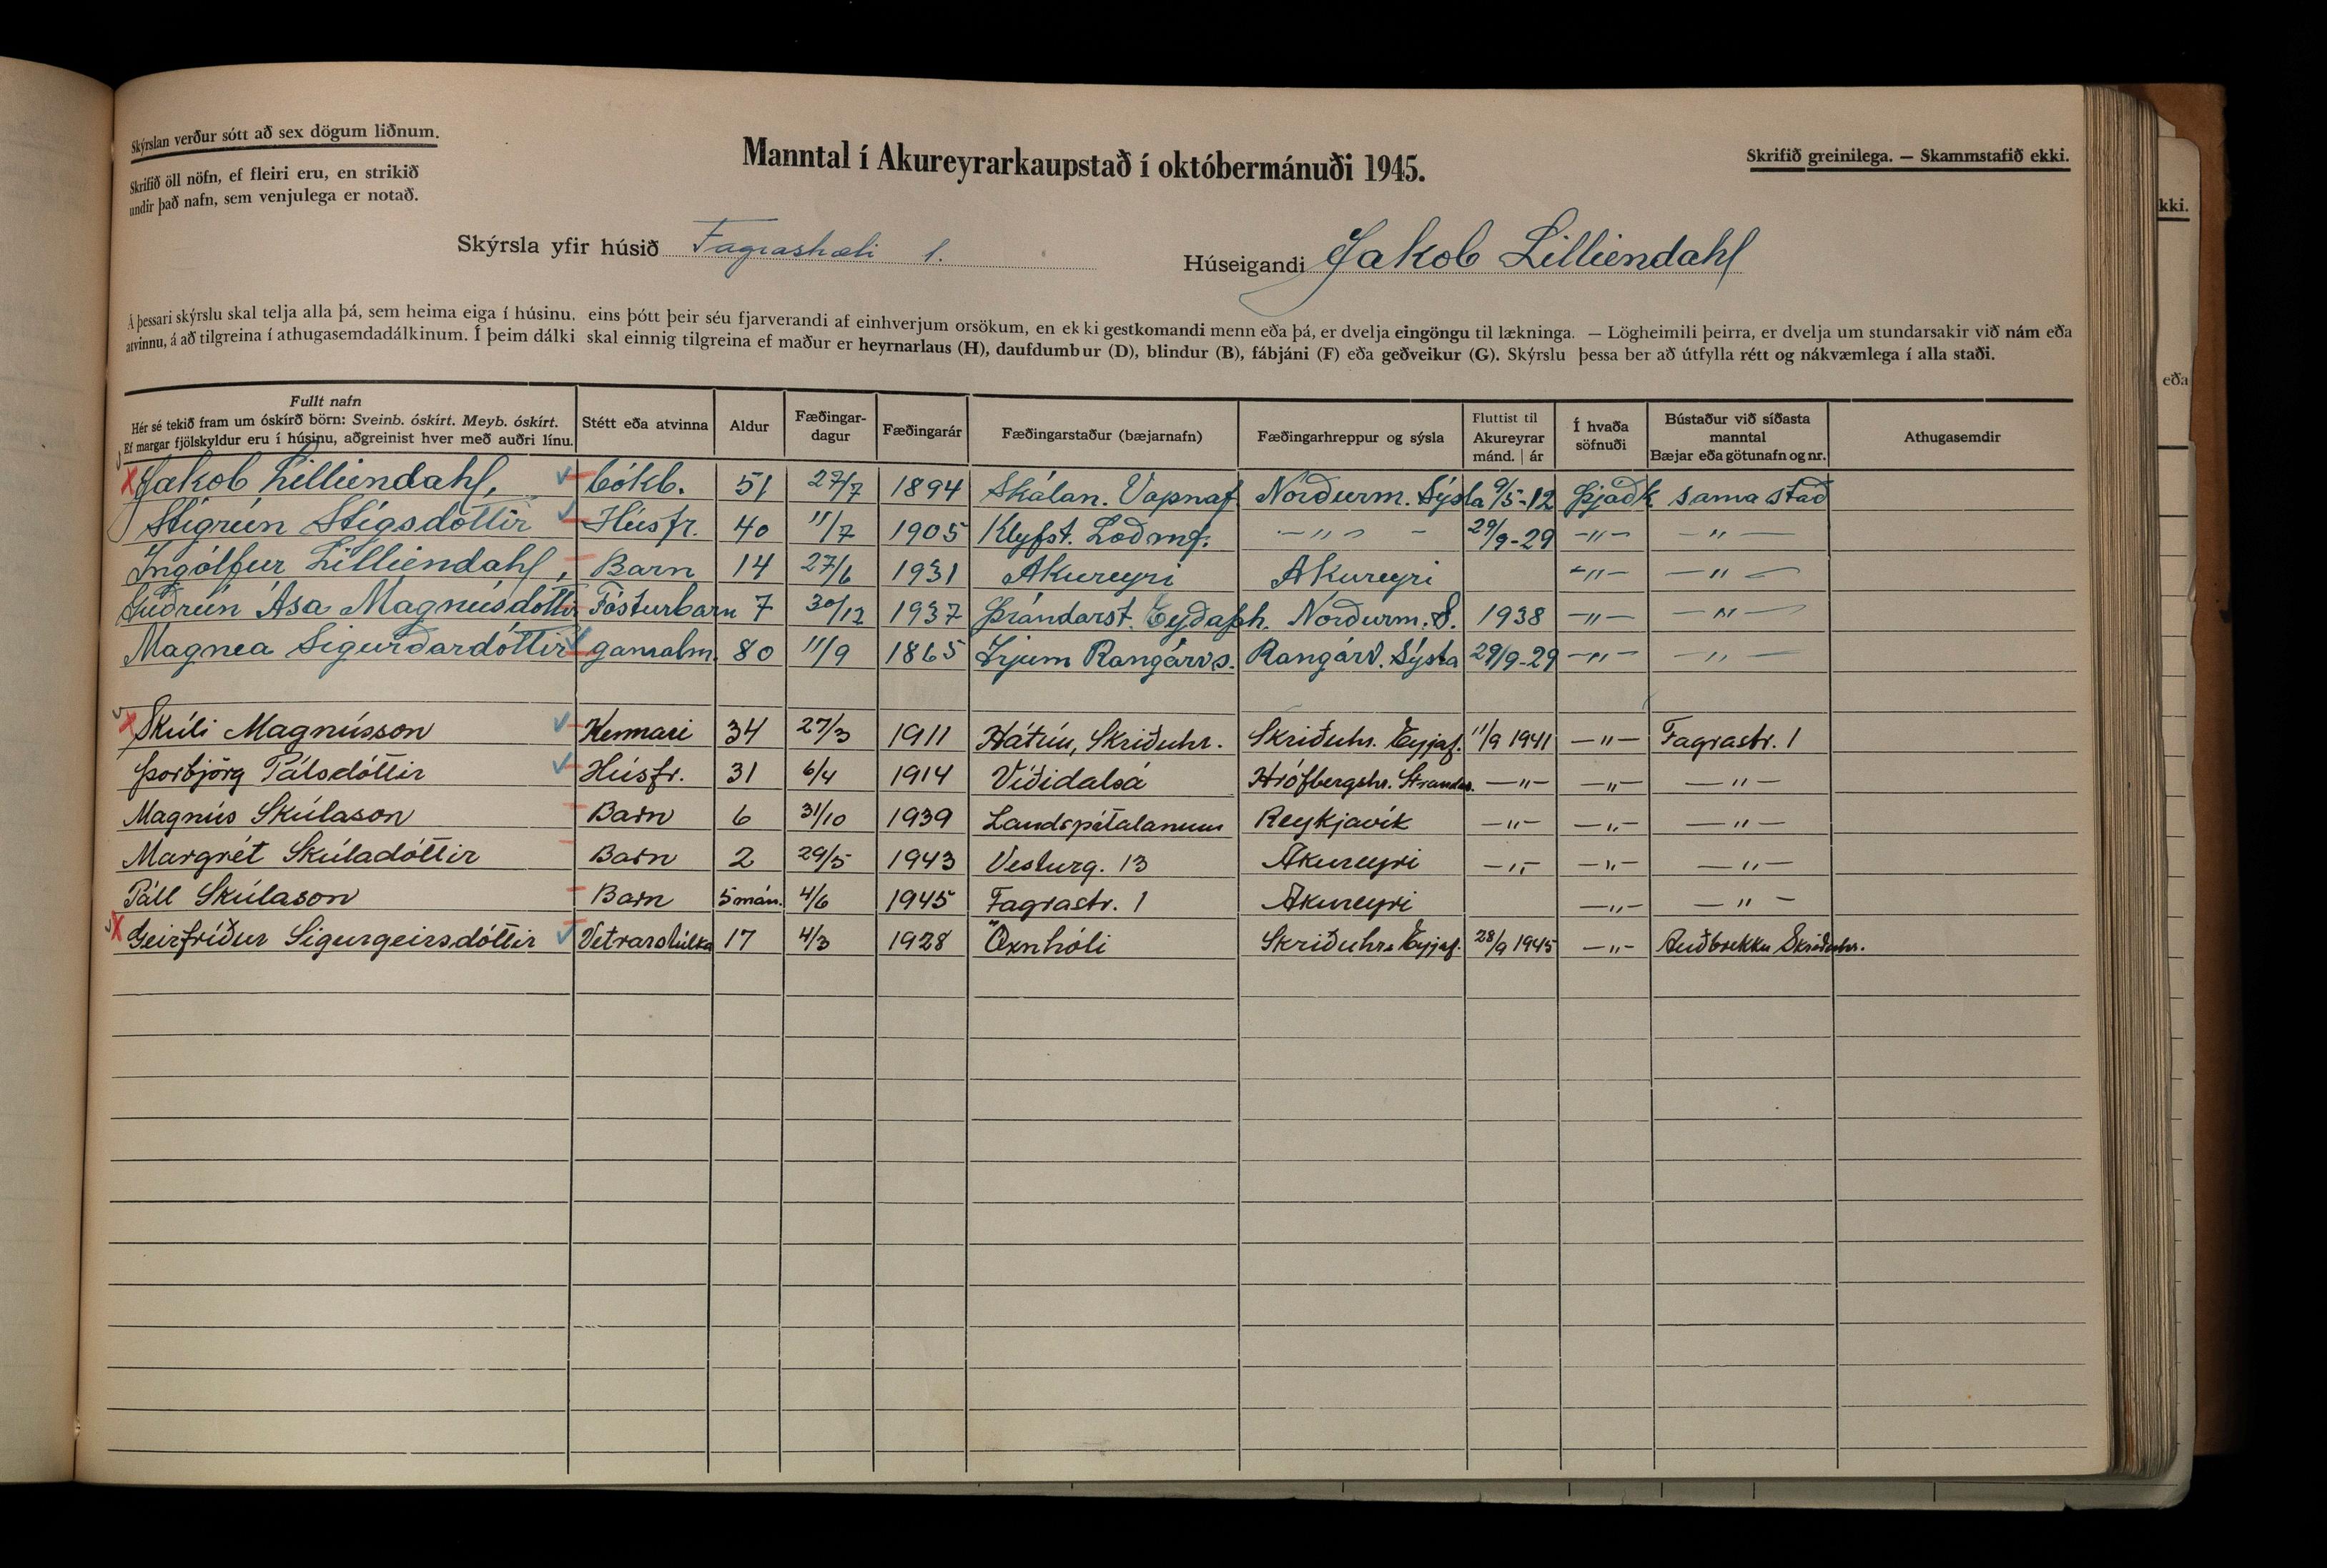 Skýrslan verður sótt að sex dögum liðnum.
Skrifið öll nöfn, ef fleiri eru, en strikið
undir það nafn, sem venjulega er notað.
Manntal í Akureyrarkaupstað í októbermánuði 1945.
Skrifið greinilega. — Skammstafið ekki.
Skýrsla yfir húsið Fagrastræti 1.
Húseigandi Jakob Lilliendahl
Á þessari skýrslu skal telja alla þá, sem heima eiga í húsinu, eins þótt þeir séu fjarverandi af einhverjum orsökum, en ekki gestkomandi menn eða þá, er dvelja eingöngu til lækninga. — Lögheimili þeirra, er dvelja um stundarsakir við nám eða
atvinnu, á að tilgreina í athugasemdadálkinum. Í þeim dálki skal einnig tilgreina ef maður er heyrnarlaus (H), daufdumbur (D), blindur (B), fábjáni (F) eða geðveikur (G). Skýrslu þessa ber að útfylla rétt og nákvæmlega í alla staði.
Fullt nafn
Hér sé tekið fram um óskírð börn: Sveinb. óskírt. Meyb. óskírt.
Ef margar fjölskyldur eru í húsinu, aðgreinist hver með auðri línu.
Stétt eða atvinna
Aldur
Fæðingar-
dagur
Fæðingarár
Fæðingarstaður (bæjarnafn)
Fæðingarhreppur og sýsla
Fluttist til
Akureyrar
mánd. | ár
Í hvaða
söfnuði
Bústaður við síðasta
manntal
Bæjar eða götunafn og nr.
Athugasemdir
Jakob Lilliendahl, bókb. 51 27/7 1894 Skálan. Vopnaf. Norðurm. Sýsla 9/5-12 Þjóðk. sama stað
Stigrún Stígsdóttir Húsfr. 40 11/7 1905 Klyfst. Loðmf. —"— 29/9-29 —"— —"—
Ingólfur Lilliendahl, Barn 14 27/6 1931 Akureyri Akureyri —"— —"—
Guðrún Ása Magnúsdóttir Fósturbarn 7 30/12 1937 Þrándarst. Eyðaþh. Norðurm. S. 1938 —"— —"—
Magnea Sigurðardóttir gamalm. 80 11/9 1865 Rangárvs. Rangárv. Sýsla 29/9-29 —"— —"—
Skúli Magnússon Kennari 34 27/3 1911 Hátún, Skriðuhr. Skriðuhr. Eyjaf. 11/9 1941 —"— Fagrastr. 1
Þorbjörg Pálsdóttir Húsfr. 31 6/4 1914 Víðidalsá Hrófbergshr. Strandas. —"— —"— —"—
Magnús Skúlason Barn 6 31/10 1939 Landspítalanum Reykjavík —"— —"— —"—
Margrét Skúladóttir Barn 2 29/5 1943 Vesturg. 13 Akureyri —"— —"— —"—
Páll Skúlason Barn 5 mán. 4/6 1945 Fagrastr. 1 Akureyri —"— —"—
Geirfríður Sigurgeirsdóttir Vetrarstúlka 17 4/3 1928 Öxnhóli Skriðuhr. Eyjaf. 28/9 1945 —"— Auðbrekku Skriðuhr.
kki.
eða